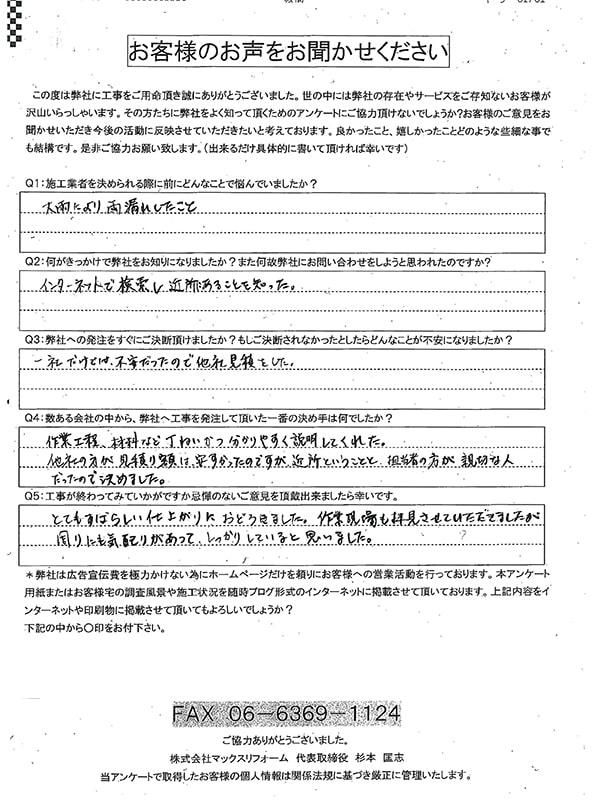 お客様のお声をお聞かせください
この度は弊社に工事をご用命頂き誠にありがとうございました。世の中には弊社の存在やサービスをご存知ないお客様が
沢山いらっしゃいます。その方たちに弊社をよく知って頂くためのアンケートにご協力頂けないでしょうか?お客様のご意見をお
聞かせいただき今後の活動に反映させていただきたいと考えております。良かったこと、嬉しかったことどのような些細な事で
も結構です。是非ご協力お願い致します。(出来るだけ具体的に書いて頂ければ幸いです)
Q1:施工業者を決められる際に前にどんなことで悩んでいましたか?
大雨により雨漏れしたこと
Q2:何がきっかけで弊社をお知りになりましたか?また何故弊社にお問い合わせをしようと思われたのですか?
インターネットで検索し近所にあることを知った。
Q3:弊社への発注をすぐにご決断頂けましたか?もしご決断されなかったとしたらどんなことが不安になりましたか?
一社だけとは、不安だったので他社見積をした。
Q4:数ある会社の中から、弊社へ工事を発注して頂いた一番の決め手は何でしたか?
作業工程、材料など丁ねいかつ分かりやすく説明してくれた。
他社の方が見積り額は、安すかったのですが、近所ということと、担当者の方が親切な人
だったので決めました。
Q5:工事が終わってみていかがですか忌憚のないご意見を頂戴出来ましたら幸いです。
とてもすばらしい仕上がりにおどろきました。作業現場も拝見させていただてましたが
周りにも気配りがあって、しっかりしていると思いました。
*弊社は広告宣伝費を極力かけない為にホームページだけを頼りにお客様への営業活動を行っております。本アンケート
用紙またはお客様宅の調査風景や施工状況を随時ブログ形式のインターネットに掲載させて頂いております。上記内容をイ
ンターネットや印刷物に掲載させて頂いてもよろしいでしょうか?
下記の中から○印をお付下さい。
FAX 06-6369-1124
ご協力ありがとうございました。
株式会社マックスリフォーム 代表取締役 杉本 匡志
当アンケートで取得したお客様の個人情報は関係法規に基づき厳正に管理いたします。